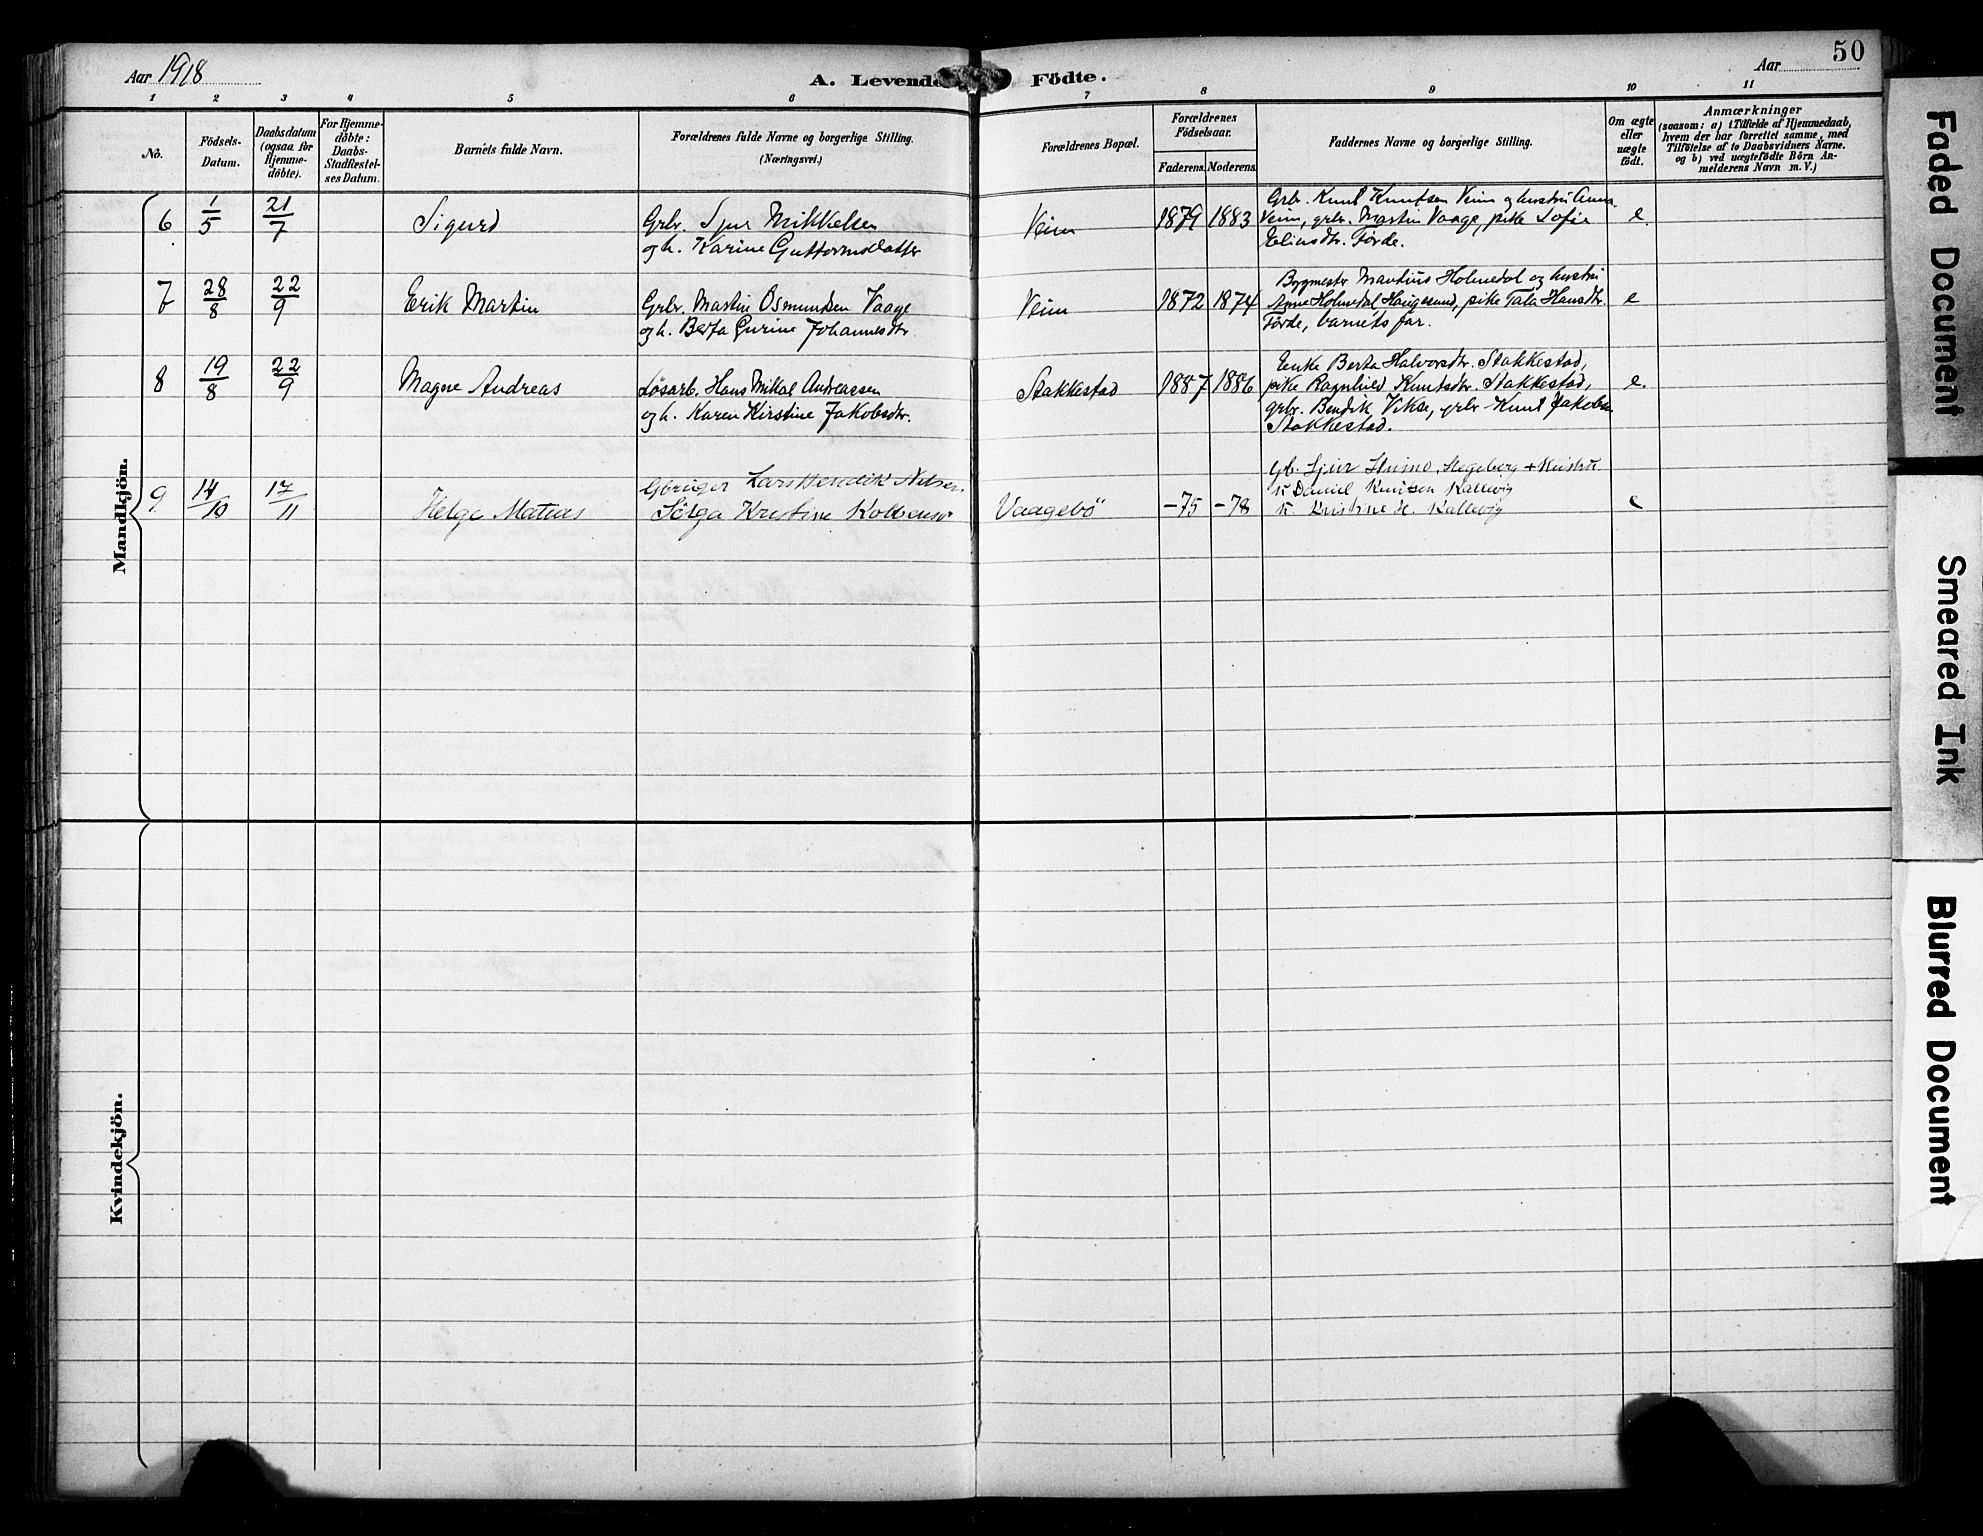 Aar 1918
A. Levende Födte.
Aar
50
1 2 3 4 5 6 7 8 9 10 11
No.
Födsels-
Datum.
Daabsdatum
(ogsaa for
Hjemme-
döbte).
For Hjemme-
döbte:
Daabs-
Stadfæstel-
ses Datum.
Barnets fulde Navn.
Forældrenes fulde Navne og borgerlige Stilling.
(Næringsvei.)
Forældrenes Bopæl.
Forældrenes
Födselsaar.
Faderens. Moderens.
Faddernes Navne og borgerlige Stilling.
Om ægte
eller
uægte
födt.
Anmærkninger
(saasom: a) i Tilfælde af Hjemmedaab,
hvem der har forrettet samme, med
Tilföielse af to Daabsvidners Navne,
og b) ved uægtefödte Börn An-
melderens Navn m. V.)
Mandkjön.
6 1/5 21/7 Sigurd
Grbr. Sjur Mikkelsen
og h. Karine Guttormsdatter
Veim 1879 1883
Grbr. Knut Knutsen Veim og hustru Anna
Veim, grbr. Martin Vaage, pike Sofie
Eliasdtr. Førde.
e.
7 28/8 22/9 Erik Martin
Grbr. Martin Osmundsen Vaage
og h. Berta Gurine Johannesdtr.
Veim 1872 1874
Bygmestr Martius Holmedal og hustru
Anne Holmedal Haugesund, pike Tala Hansdtr.
Førde, barnets far.
e
8 19/8 22/9 Magne Andreas
Løsarb. Hans Mikal Andreassen
og h. Karen Kirstine Jakobsdtr.
Stakkestad 1887 1886
Enke Berta Halvorsdtr. Stakkestad,
pike Ragnhild Knutsdtr. Stakkestad,
grbr. Bendik Vikse, grbr Knut Jakobsen
Stakkestad.
e.
9 14/10 17/11 Helge Mateus
Gbruger Lars Bendik Nilsen
Kristine
Vaagebö -75 -78
Gb. Sjur + Hustru
K Daniel Knutsen Kallevig
K. Kristine K. Kallevig
e
Kvindekjön.
Faded Document
Smeared Ink
Blurred Document